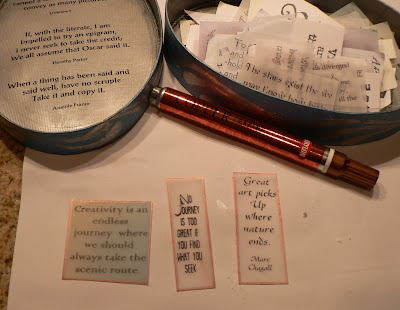 convey as many pictures.
Unknown
If, with the literate, I am
Impelled to try an epigram,
I never seek to take the credit;
We all assume that Oscar said it.
Dorothy Parker
When a thing has been said and
said well, have no scruple
Take it and copy it.
Anatole France
The stars exist
Creativity is an
endless
journey where
we should
always take the
scenic route.
No
Journey
is too
great if
you find
what you
seek
Great
art picks
Up
where
nature
ends.
Marc
Chagall